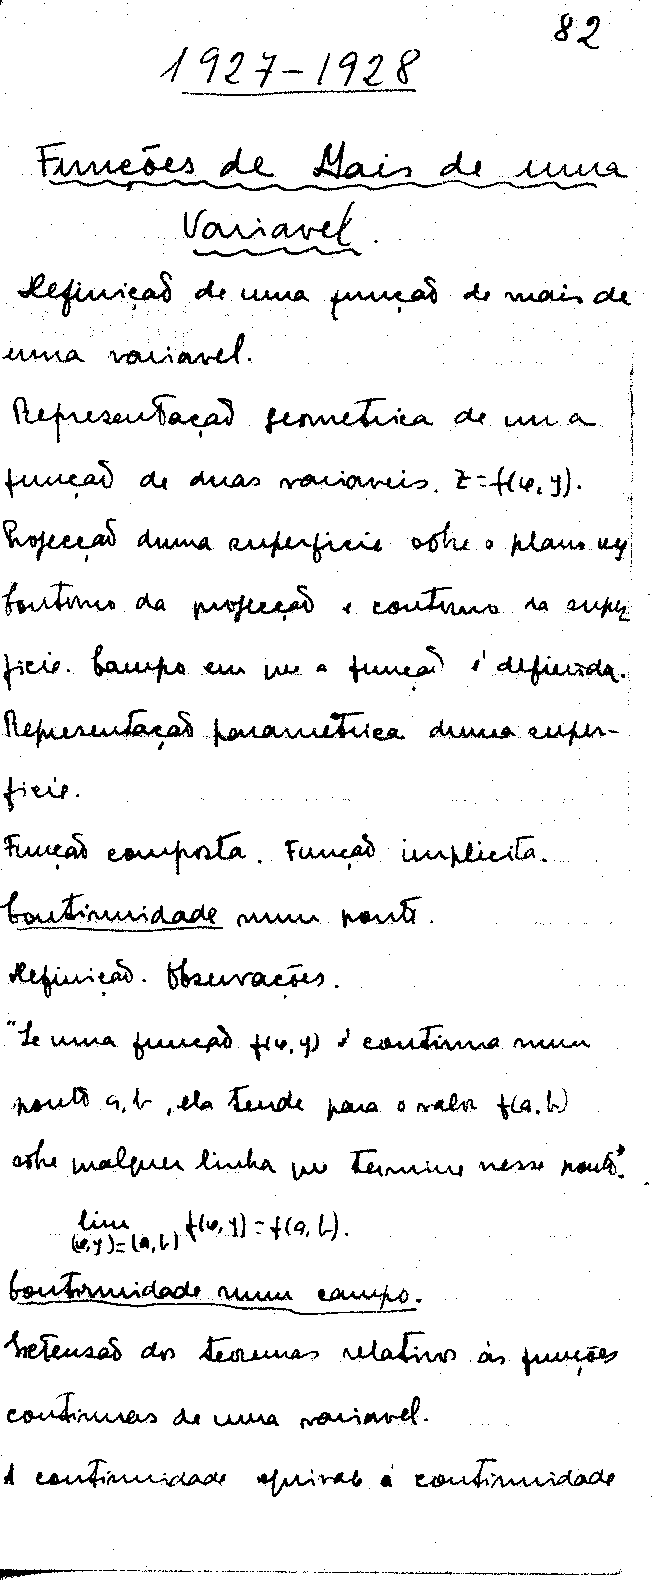 82
1927-1928
Funções de Mais de uma
Variavel.
Definição de uma função de mais de
uma variavel.
Representação geometrica de uma
função de duas variaveis. z=f(x,y).
Projecção duma superficie sobre o plano xy
Contorno da projecção e contorno da super
ficie. Campo em que a função é definida.
Representação parametrica duma super-
ficie.
Função composta. Função implicita.
Continuidade num ponto.
Definição. Observações.
"Se uma função f(x,y) é continua num
ponto a,b, ela tende para o valor f(a,b)
sobre qualquer linha que termine nesse ponto".
lim f(x,y)=f(a,b).
(x,y)=(a,b)
Continuidade num campo.
Extensão dos teoremas relativos ás funções
continuas de uma variavel.
A continuidade equivale á continuidade